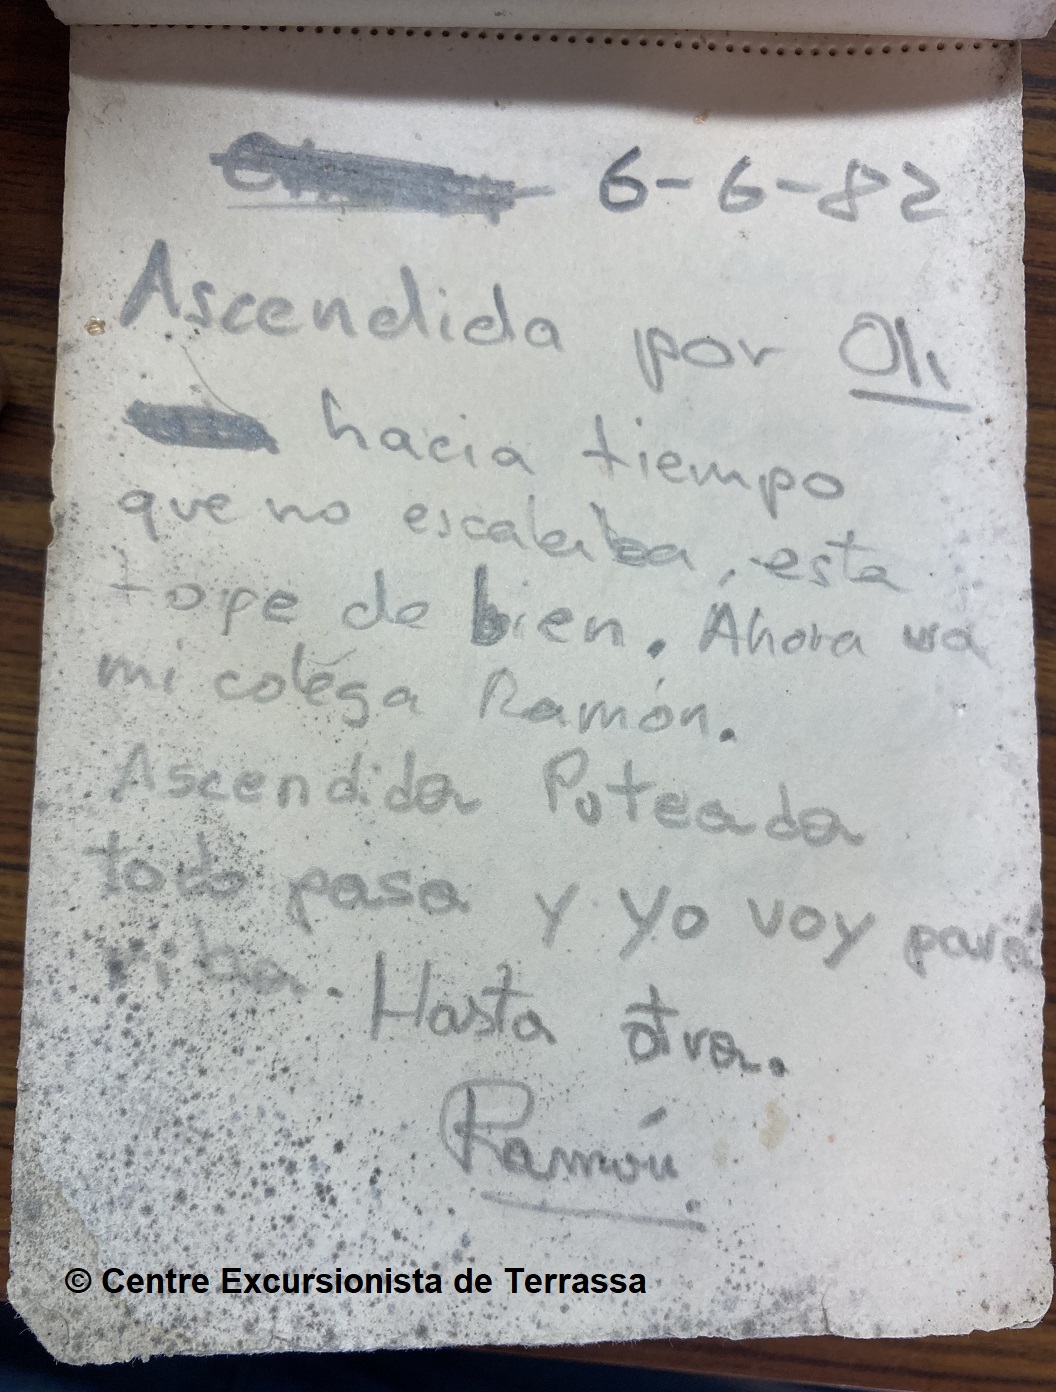 6-6-82
Ascendida por Oli
hacia tiempo
que no escalaba, esta
tope de bien. Ahora va
mi colega Ramón.
Ascendida Puteada
todo pasa y yo voy para
riba. Hasta otra.
Ramón
© Centre Excursionista de Terrassa